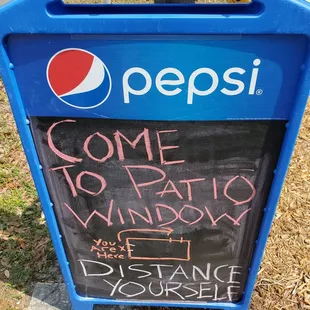 pepsi®
COME
TO PATIO
WINDOW
You
Are X
Here
DISTANCE
YOURSELF